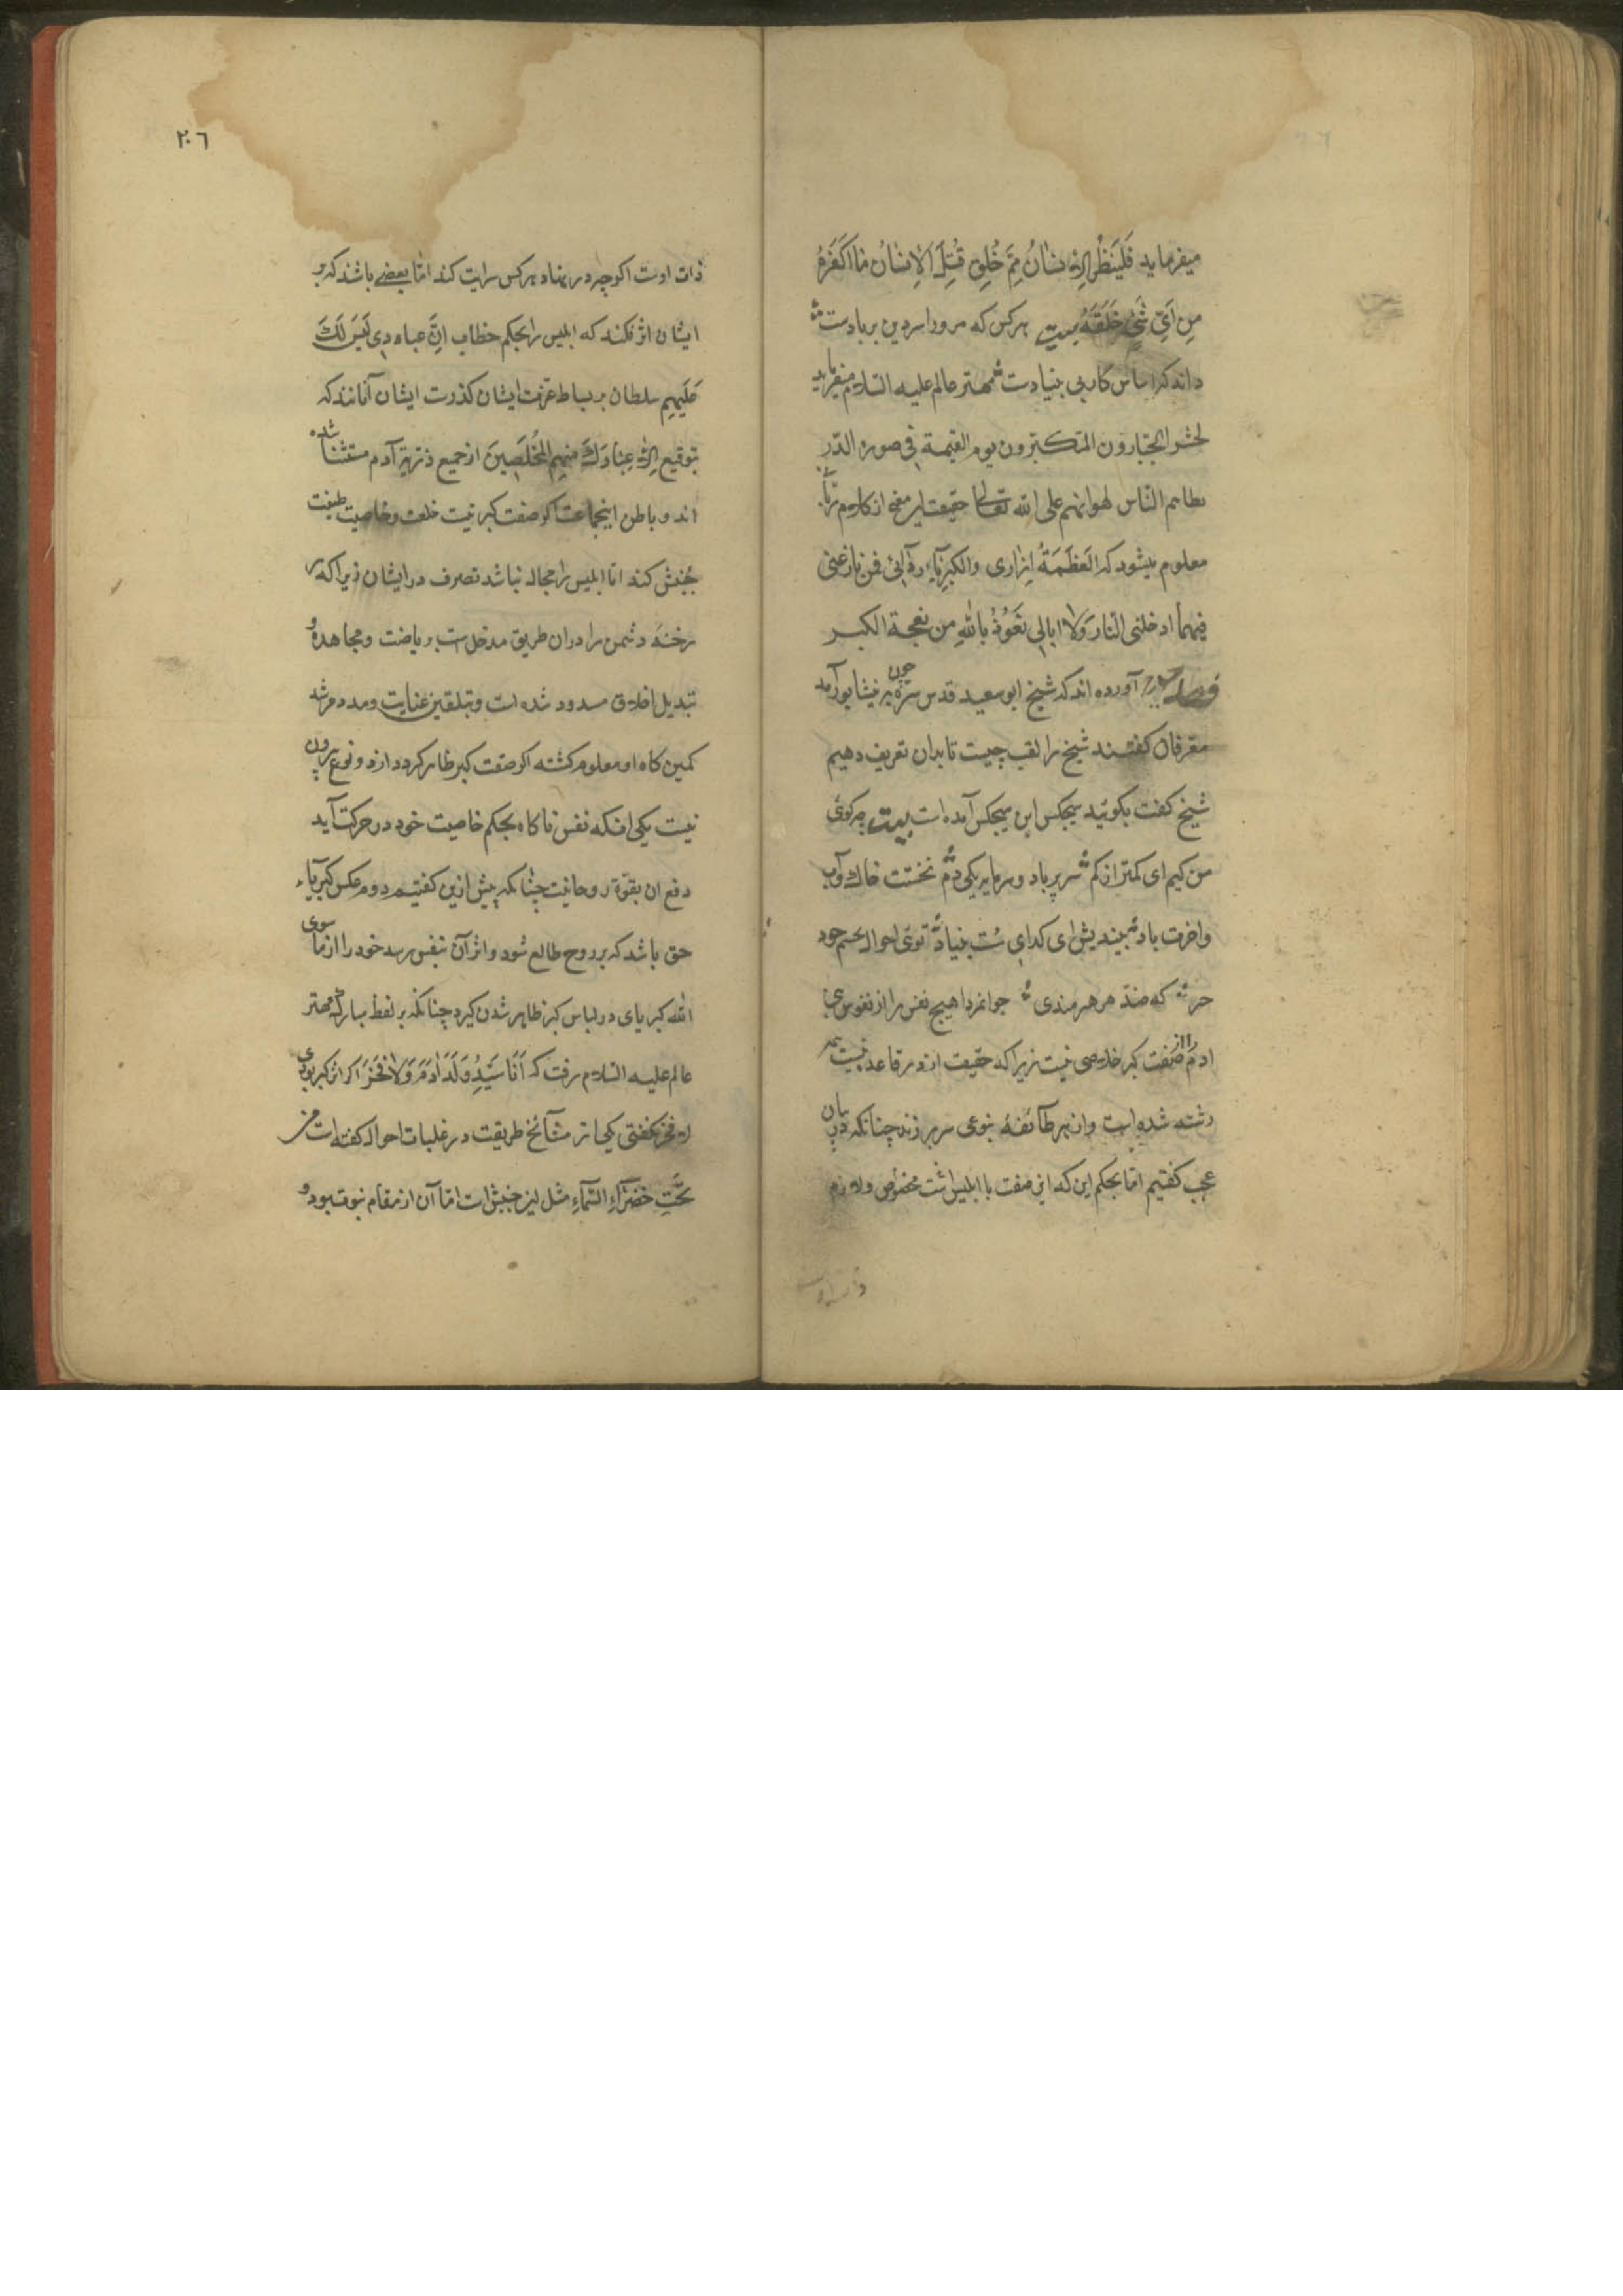 میفرماید فَلْیَنْظُرِ الاِنسانُ مِمَّ خُلِقَ قُتِلَ الاِنسانُ ما اَکفَرَهُ
مِن اَیِّ شَیْءٍ خَلَقَهُ بیت هرکس که مرورا سر دین بر بادست
داند که اساس کار بی بنیادست مهتر عالم علیه السلام میفرماید
یحشر الجبارون المتکبرون یوم القیمة فی صوره الذر
یطاهم الناس لهوانهم علی الله تعالی حقیقت این معنی از کلام
معلوم میشود که العَظَمَةُ اِزاری والکبریاءُ ردائی فمن نازعنی
فیهما ادخلنی النار وَلا ابالی نَعُوذُ بِاللهِ من نفحة الکبر
آورده اند که شیخ ابو سعید قدس سره چون به نیشابور آمد
معرفان گفتند شیخ را لقب چیست تا بدان تعریف دهیم
شیخ گفت بگوئید هیچکس ابن هیچکس آمده است بیت چه گوئی
من کیم ای کمتر از کم سر پر باد و سرمایه یکی دم نخستت خاک و آب
واخرت باد بیندیش ای گدای سست بنیاد توئی احوال بحسم خود
که ضد هر هنرمندی جوانمردا هیچ نفس را از نفوس بنی
ادم را از صفت کبر خلاصی نیست زیرا که حقیقت ازو بر قاعد نیست همه
رشته شده است واز هر طائفهٔ بنوعی سر بر زند چنانکه در بیان
عجب گفتیم اما بحکم این که این صفت با ابلیس است مخصوص ولازم
۲۰۶
ذات اوست اکرچه در نهاد هرکس سرایت کند امّا بعضی باشند که بر
ایشان اثر نکند که ابلیس را بحکم خطاب اِنَّ عبادِی لَیسَ لَکَ
عَلَیهِم سلطان بر بساط عزت ایشان گذرست ایشان آنانند که
بتوقیع اِلّا عِبادَکَ مِنهُم المُخلَصینَ از جمیع ذریه آدم مستثنا شده
اند و باطن اینجماعت اکر صفت کبر نیت خلعت و خاصیت طینت
جُنبش کند امّا ابلیس را مجال نباشد تصرف در ایشان زیرا که
رخنهٔ دشمن را در ان طریق مدخل است بریاضت و مجاهده و
تبدیل اخلاق مسدود شده است و بتلقین عنایت ومدد مرشد
کمین کاه او معلوم کشته اکر صفت کبر ظاهر کردد از دو نوع برون
نیست یکی انکه نفس ناکاه بحکم خاصیت خود در حرکت آید
دفع ان بقوّة روحانیت چنانکه پیش ازین گفتیم دوم عکس کبریآء
حق باشد که بر روح طالع شود و اثر آن بنفس رسد خود را از ما سوی
الله کبریای در لباس کبر ظاهر شدن گیرد چنانکه بر لفظ مبارک مهتر
عالم علیه السلام رفت که اَنَا سَیِّدُ وَلَدِ ادَمَ وَلا فَخَرَ اگر از کبر بودی
لا فخر نگفتی یکی از مشآئخ طریقت در غلبات احوال گفته است من
تَحْتِ خَضرآءِ السَّمآءِ مثل این جنبش است امّا آن از مقام نبوت بود و